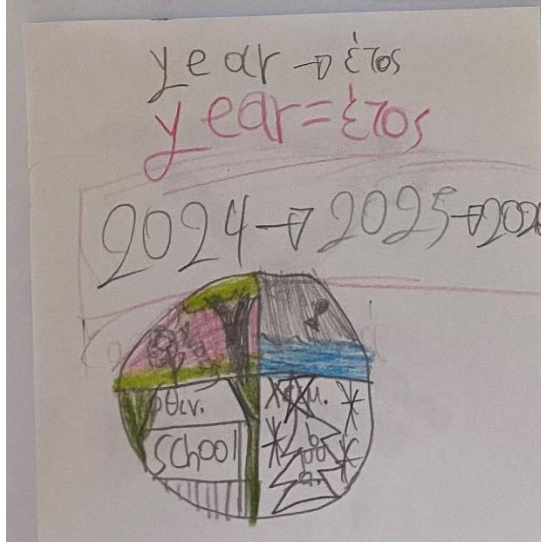 year → έτος
year = έτος
2024 → 2025 → 202
φθιν. χειμ.
school